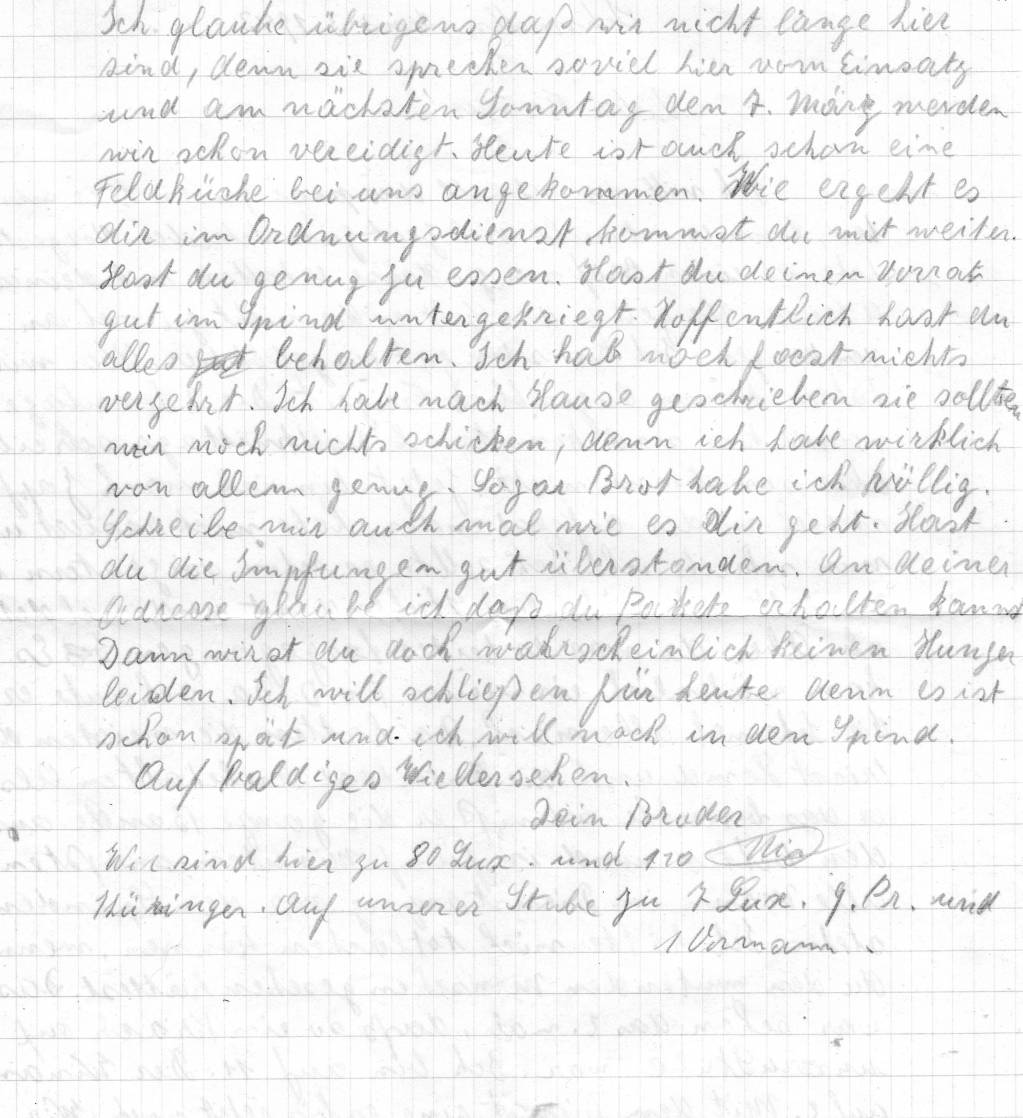 Ich glaube übrigens daß wir nicht länge hier
sind, denn sie sprechen soviel hier vom Einsatz
und am nächsten Sonntag den 7. März werden
wir schon vereidigt. Heute ist auch schon eine
Feldküche bei uns angekommen. Wie ergeht es
dir im Ordnungsdienst kommst du mit weiter.
Hast du genug zu essen. Hast du deinen Vorrat
gut im Spind untergekriegt. Hoffentlich hast du
alles gut behalten. Ich hab noch fast nichts
verzehrt. Ich habe nach Hause geschrieben sie sollten
mir noch nichts schicken, denn ich habe wirklich
von allem genug. Sogar Brot habe ich völlig.
Schreibe mir auch mal wie es dir geht. Hast
du die Impfungen gut überstanden. An deiner
Adresse glaube ich daß du Pakete erhalten kannst
Dann wirst du doch wahrscheinlich keinen Hunger
leiden. Ich will schließen für heute denn es ist
schon spät und ich will noch in den Spind.
Auf baldiges Wiedersehen.
Dein Bruder
Wir sind hier zu 80 Lux. und 120
Thüringer. Auf unserer Stube zu 7 Lux. 9. Pr. und
1 Vormann.